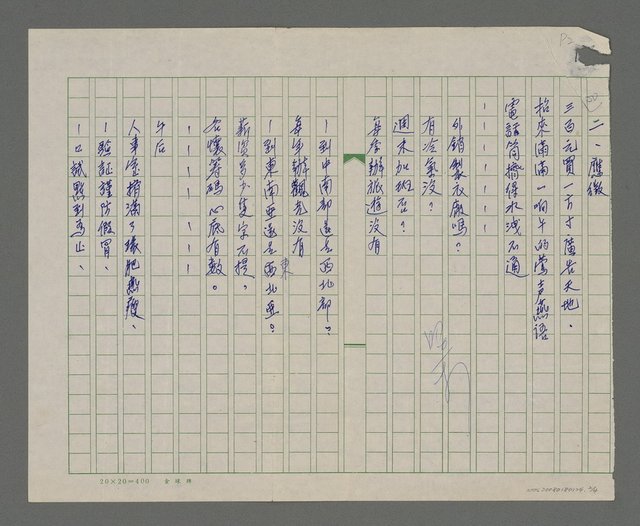 P2
二、應徵
三百元買一方寸廣告天地、
招來滿滿一晌午的鶯声燕語
電話筒擠得水洩不通
－－－－－
外銷製衣廠嗎？
有冷氣沒？
週末加班否？
每季辦旅遊沒有
－到中南部還是西北部？
每年辦觀光沒有
－到東南亞還是西北亞？
東
薪資多少隻字不提，
各懷籌碼心底有數。
－－－－－
午后
人事室擠滿了環肥燕瘦、
－驗証謹防假冒、
－口試點到為止、
20×20=400 金球牌